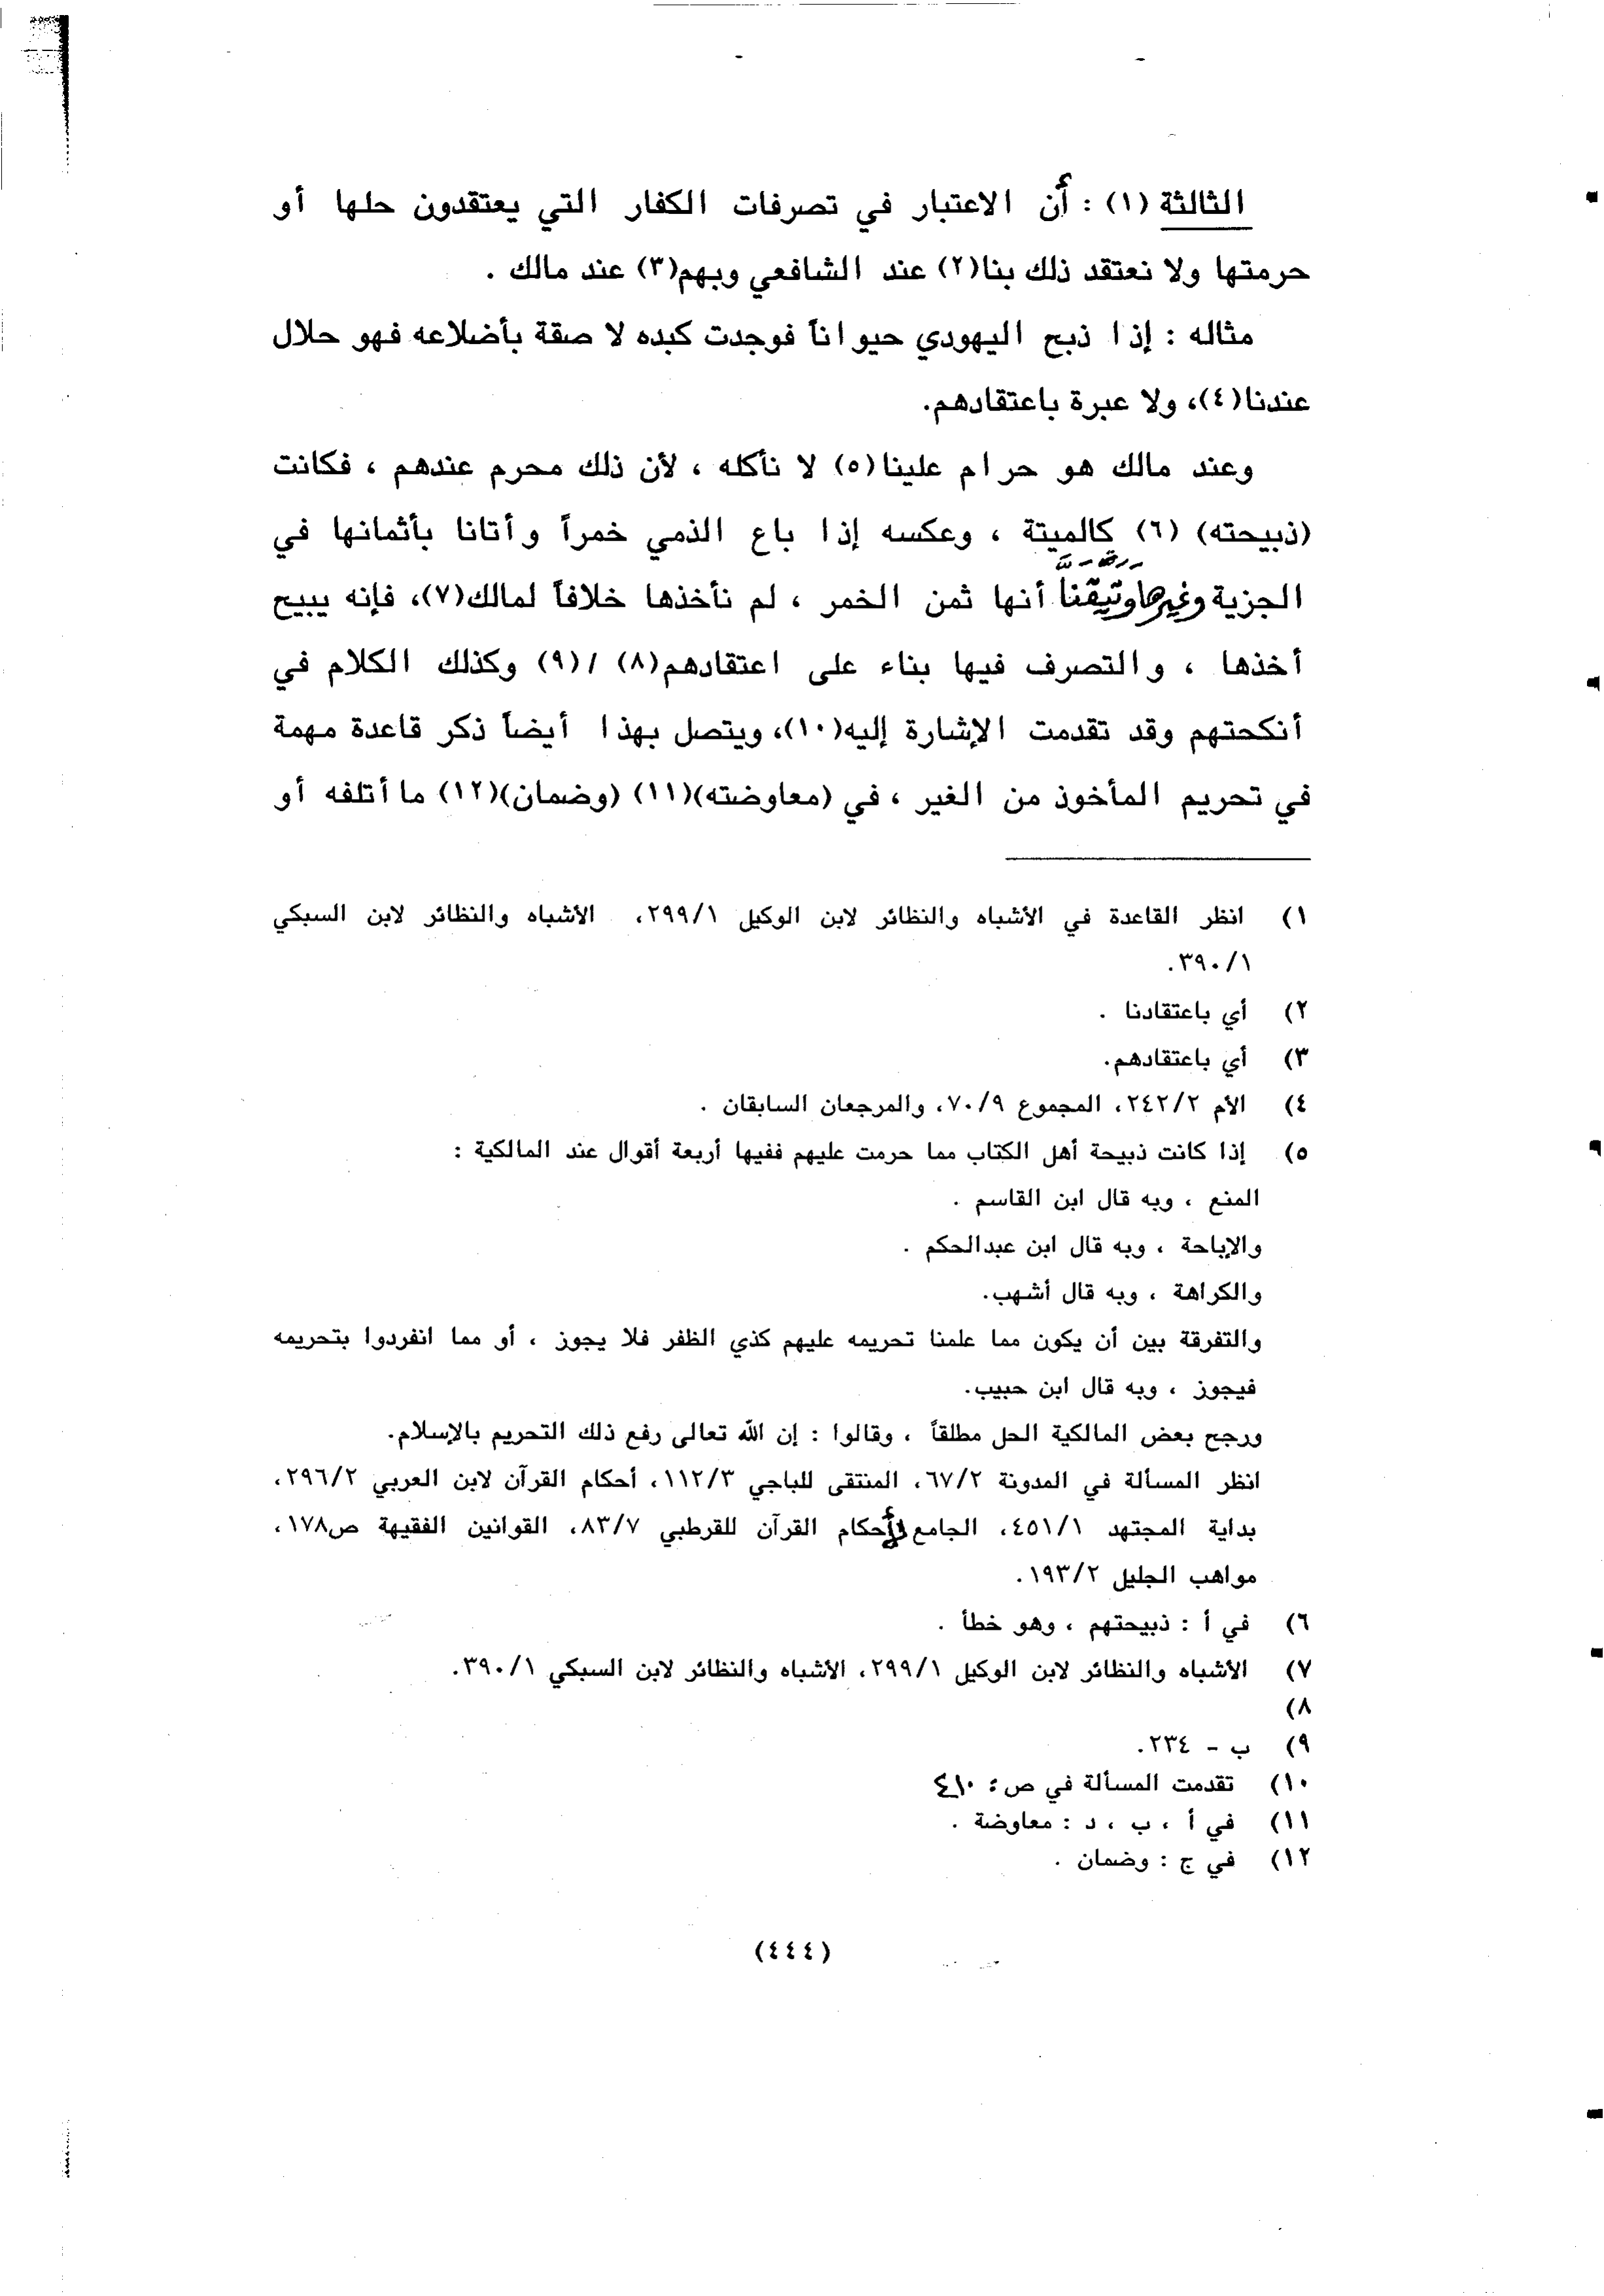 الثالثة (١) : أن الاعتبار في تصرفات الكفار التي يعتقدون حلها أو
حرمتها ولا نعتقد ذلك بنا(٢) عند الشافعي وبهم(٣) عند مالك .
مثاله : إذا ذبح اليهودي حيواناً فوجدت كبده لا صقة بأضلاعه فهو حلال
عندنا(٤)، ولا عبرة باعتقادهم.
وعند مالك هو حرام علينا(٥) لا نأكله ، لأن ذلك محرم عندهم ، فكانت
(ذبيحته) (٦) كالميتة ، وعكسه إذا باع الذمي خمراً وأتانا بأثمانها في
الجزية وغيرها وتيقّنا أنها ثمن الخمر ، لم نأخذها خلافاً لمالك(٧)، فإنه يبيح
أخذها ، والتصرف فيها بناء على اعتقادهم(٨) /(٩) وكذلك الكلام في
أنكحتهم وقد تقدمت الإشارة إليه(١٠)، ويتصل بهذا أيضاً ذكر قاعدة مهمة
في تحريم المأخوذ من الغير ، في (معاوضته)(١١) (وضمان)(١٢) ما أتلفه أو
١) انظر القاعدة في الأشباه والنظائر لابن الوكيل ٢٩٩/١، الأشباه والنظائر لابن السبكي
٣٩٠/١.
٢) أي باعتقادنا .
٣) أي باعتقادهم.
٤) الأم ٢٤٢/٢، المجموع ٧٠/٩، والمرجعان السابقان .
٥) إذا كانت ذبيحة أهل الكتاب مما حرمت عليهم ففيها أربعة أقوال عند المالكية :
المنع ، وبه قال ابن القاسم .
والإباحة ، وبه قال ابن عبدالحكم .
والكراهة ، وبه قال أشهب.
والتفرقة بين أن يكون مما علمنا تحريمه عليهم كذي الظفر فلا يجوز ، أو مما انفردوا بتحريمه
فيجوز ، وبه قال ابن حبيب.
ورجح بعض المالكية الحل مطلقاً ، وقالوا : إن الله تعالى رفع ذلك التحريم بالإسلام.
انظر المسألة في المدونة ٦٧/٢، المنتقى للباجي ١١٢/٣، أحكام القرآن لابن العربي ٢٩٦/٢،
بداية المجتهد ٤٥١/١، الجامع لأحكام القرآن للقرطبي ٨٣/٧، القوانين الفقيهة ص١٧٨،
مواهب الجليل ١٩٣/٢.
٦) في أ : ذبيحتهم ، وهو خطأ .
٧) الأشباه والنظائر لابن الوكيل ٢٩٩/١، الأشباه والنظائر لابن السبكي ٣٩٠/١.
٨)
٩) ب - ٢٣٤.
١٠) تقدمت المسألة في ص: ٤١٠
١١) في أ ، ب ، د : معاوضة .
١٢) في ج : وضمان .
(٤٤٤)